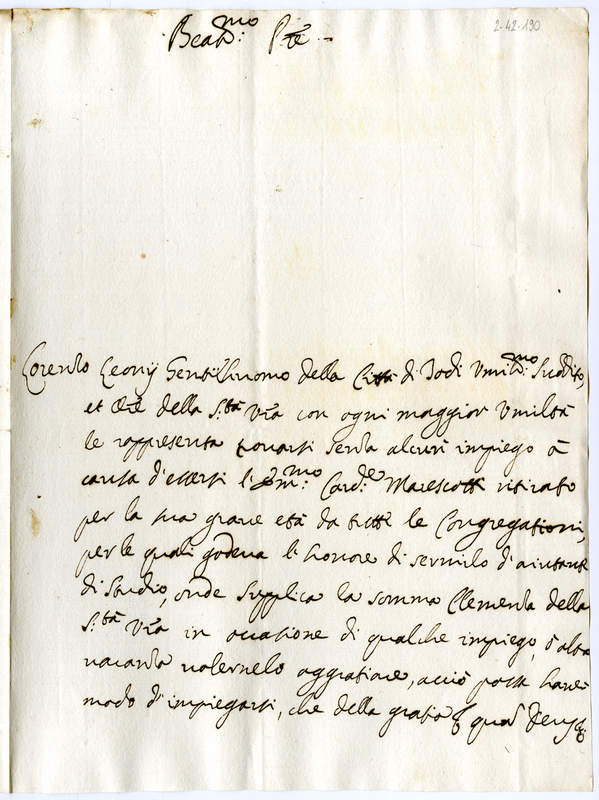 Beat.mo P.re
2-42-190
Lorenzo Leonij Gentilhuomo della Città di Todi Umil.mo Suddito,
et Or.e della S.tà V.ra con ogni maggior Umiltà
le rappresenta trovarsi senza alcun impiego à
causa d'essersi l'Em.mo Card.le Marescotti ritirato
per la sua grave età da tutte le Congregationi,
per le quali godeva l'honore di servirlo d'aiutante
di studio, onde supplica la somma Clemenza della
S.tà V.ra in occasione di qualche impiego, ò altra
vacanza volernelo aggratiare, acciò possa haver
modo d'impiegarsi, che della gratia